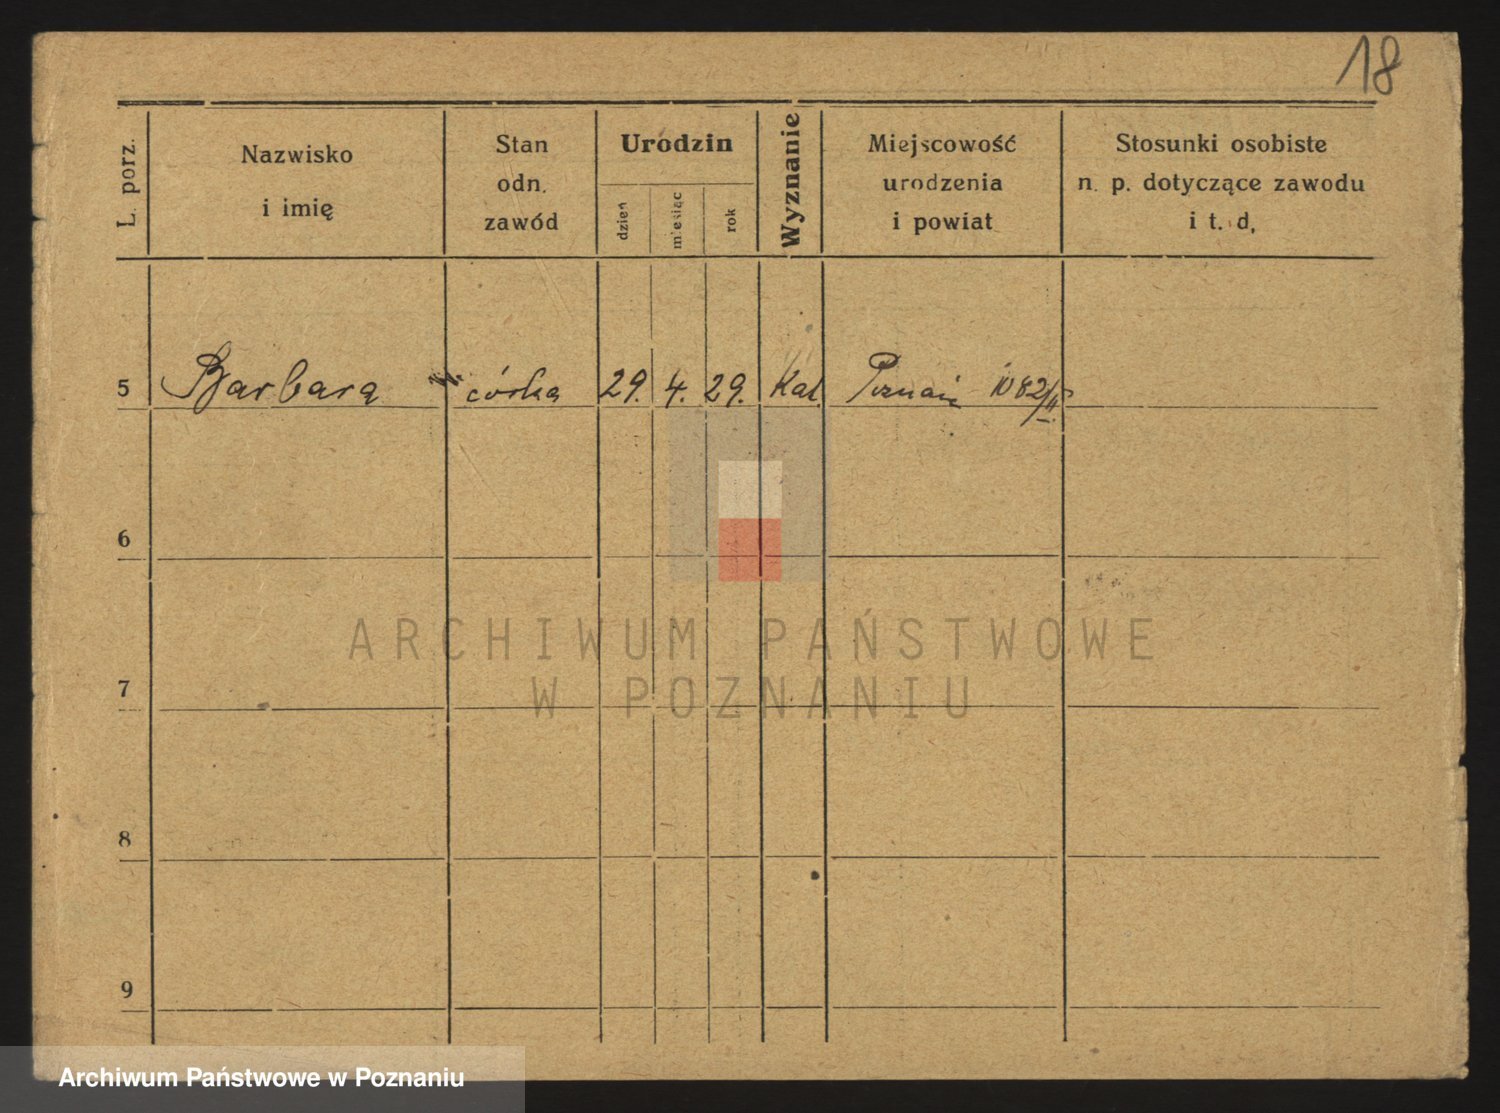 18
L. porz.
Nazwisko
i imię
Stan
odn.
zawód
Urodzin
dzień
miesiąc
rok
Wyznanie
Miejscowość
urodzenia
i powiat
Stosunki osobiste
n. p. dotyczące zawodu
i t. d.
5 Barbara córka 29. 4. 29. Kat. Poznań 1082/II
6
7
8
9
ARCHIWUM PAŃSTWOWE
W POZNANIU
Archiwum Państwowe w Poznaniu